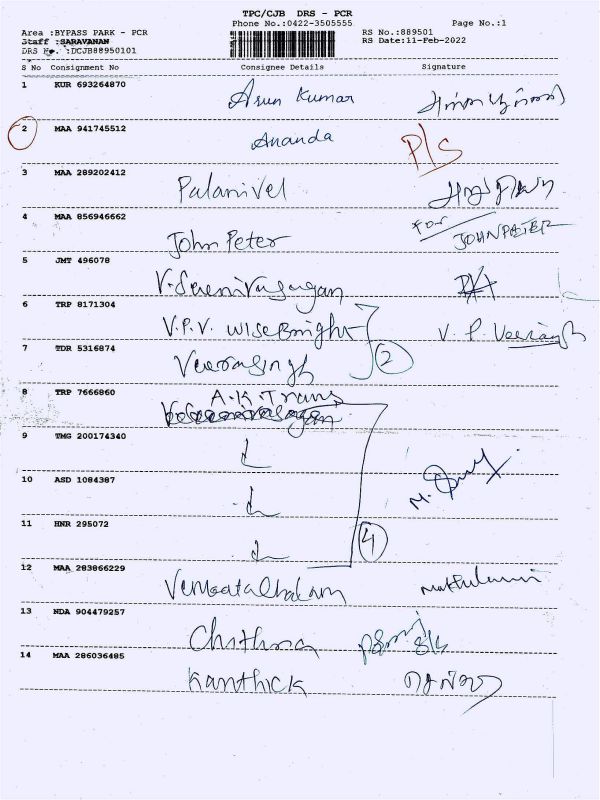 TPC/CJB DRS - PCR
Phone No.:0422-3505555
Page No.:1
Area :BYPASS PARK - PCR
Staff :SARAVANAN
DRS No. :DCJB88950101
RS No.:889501
RS Date:11-Feb-2022
S No Consignment No Consignee Details Signature
1 KUR 693264870 Arun Kumar
2 MAA 941745512 Ananda P/S
3 MAA 289202412 Palanivel
4 MAA 856946662 John Peter For JOHN PETER
5 JMT 496078
6 TRP 8171304 V.P.V. wise Bright V. P. Veerasingh
7 TDR 5316874 Veerasingh 2
8 TRP 7666860 A.K. Trans
9 TMG 200174340
10 ASD 1084387 M.
11 HNR 295072 4
12 MAA 283866229
13 NDA 904479257 Chithra
14 MAA 286036485 Kanthick